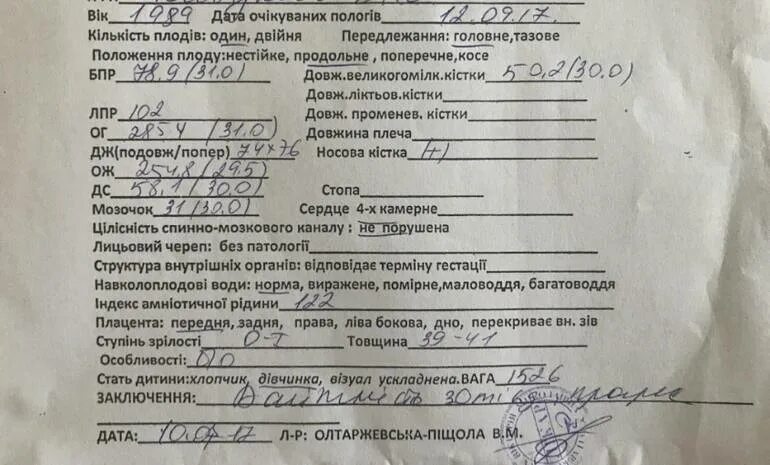 Вік 1989 Дата очікуваних пологів 12.09.17.
Кількість плодів: один, двійня Передлежання: головне,тазове
Положення плоду:нестійке, продольне , поперечне,косе
БПР 78,9 (31.0) Довж.великогомілк.кістки 50,2 (30.0)
Довж.ліктьов.кістки
ЛПР 102 Довж. променев. кістки
ОГ 285.4 (31.0) Довжина плеча
ДЖ(подовж/попер) 74х76 Носова кістка (+)
ОЖ 254,8 (29.5)
ДС 58,1 (30.0) Стопа
Мозочок 31 (30.0) Сердце 4-х камерне
Цілісність спинно-мозкового каналу : не порушена
Лицьовий череп: без патології
Структура внутрішніх органів: відповідає терміну гестації
Навколоплодові води: норма, виражене, помірне,маловоддя, багатоводдя
Індекс амніотичної рідини 122
Плацента: передня, задня, права, ліва бокова, дно, перекриває вн. зів
Ступінь зрілості 0-I Товщина 39-41
Особливості:
Стать дитини:хлопчик, дівчинка, візуал ускладнена.ВАГА 1526
ЗАКЛЮЧЕННЯ: Вагітність 30
ДАТА: 10.07.17 Л-Р: ОЛТАРЖЕВСЬКА-ПІЩОЛА В.М.